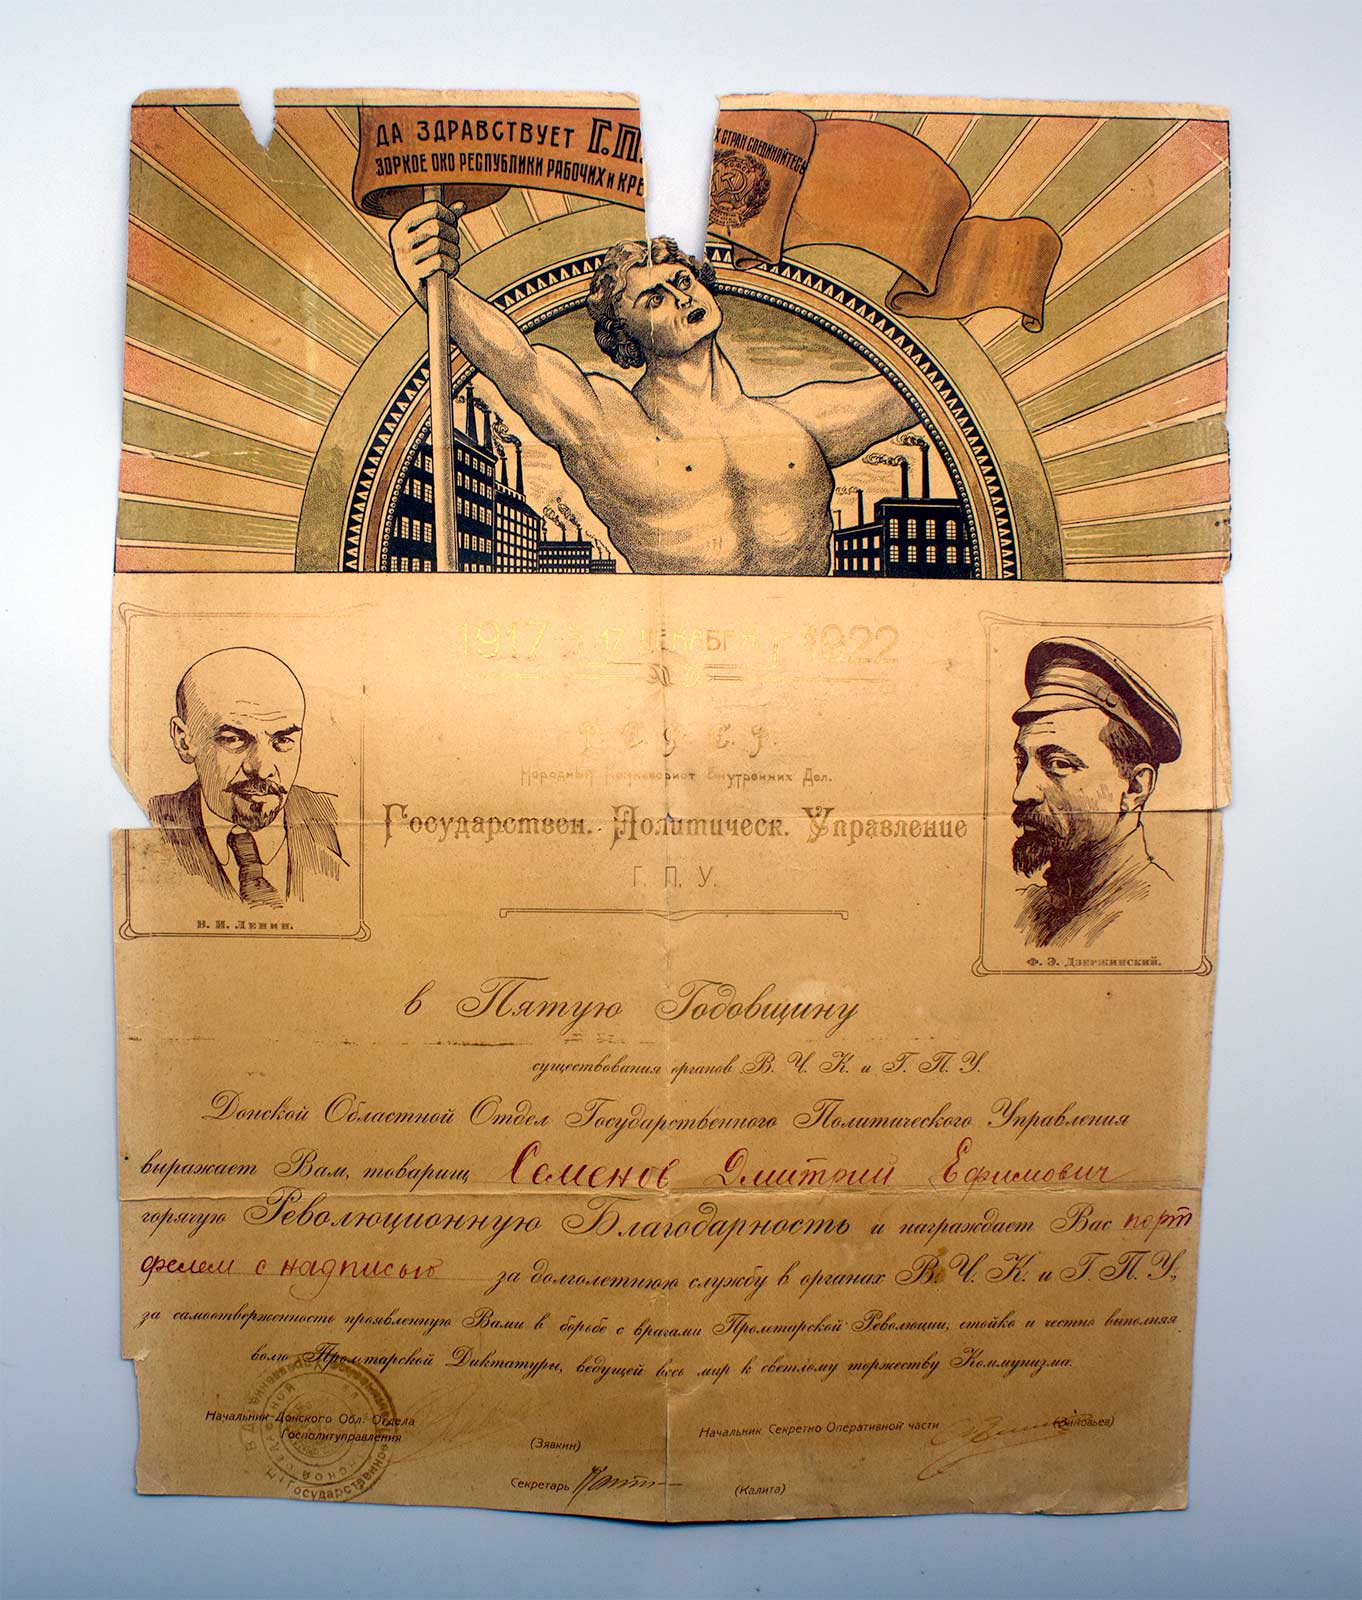 ДА ЗДРАВСТВУЕТ Г.П.
Х СТРАН СОЕДИНЯЙТЕСЬ
ЗОРКОЕ ОКО РЕСПУБЛИКИ РАБОЧИХ И КРЕ
1917 17 ДЕКАБРЯ 1922
Р. С. Ф. С. Р.
Народный Комиссариат Внутренних Дел.
Государствен. Политическ. Управление
Г. П. У.
В. И. Ленин.
Ф. Э. Дзержинский.
в Пятую Годовщину
существования органов В. Ч. К. и Г. П. У.
Донской Областной Отдел Государственного Политического Управления
выражает Вам, товарищ Семенов Дмитрий Ефимович
горячую Революционную Благодарность и награждает Вас порт
фелем с надписью за долголетнюю службу в органах В. Ч. К. и Г. П. У.,
за самоотверженность проявленную Вами в борьбе с врагами Пролетарской Революции, стойко и честно выполняя
волю Пролетарской Диктатуры, ведущей весь мир к светлому торжеству Коммунизма.
Начальник Донского Обл. Отдела
Госполитуправления
(Зявкин)
Начальник Секретно Оперативной части
(Зиновьев)
Секретарь
(Калита)